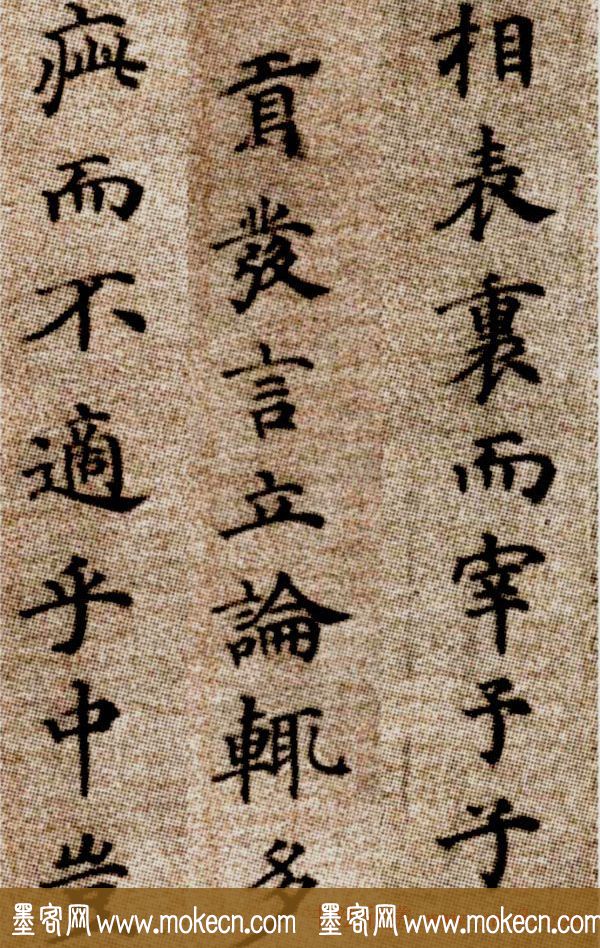 相表裏而宰予子
貢發言立論輒多
疵而不適乎中豈
墨客网 www.mokecn.com 墨客网 www.mokecn.com